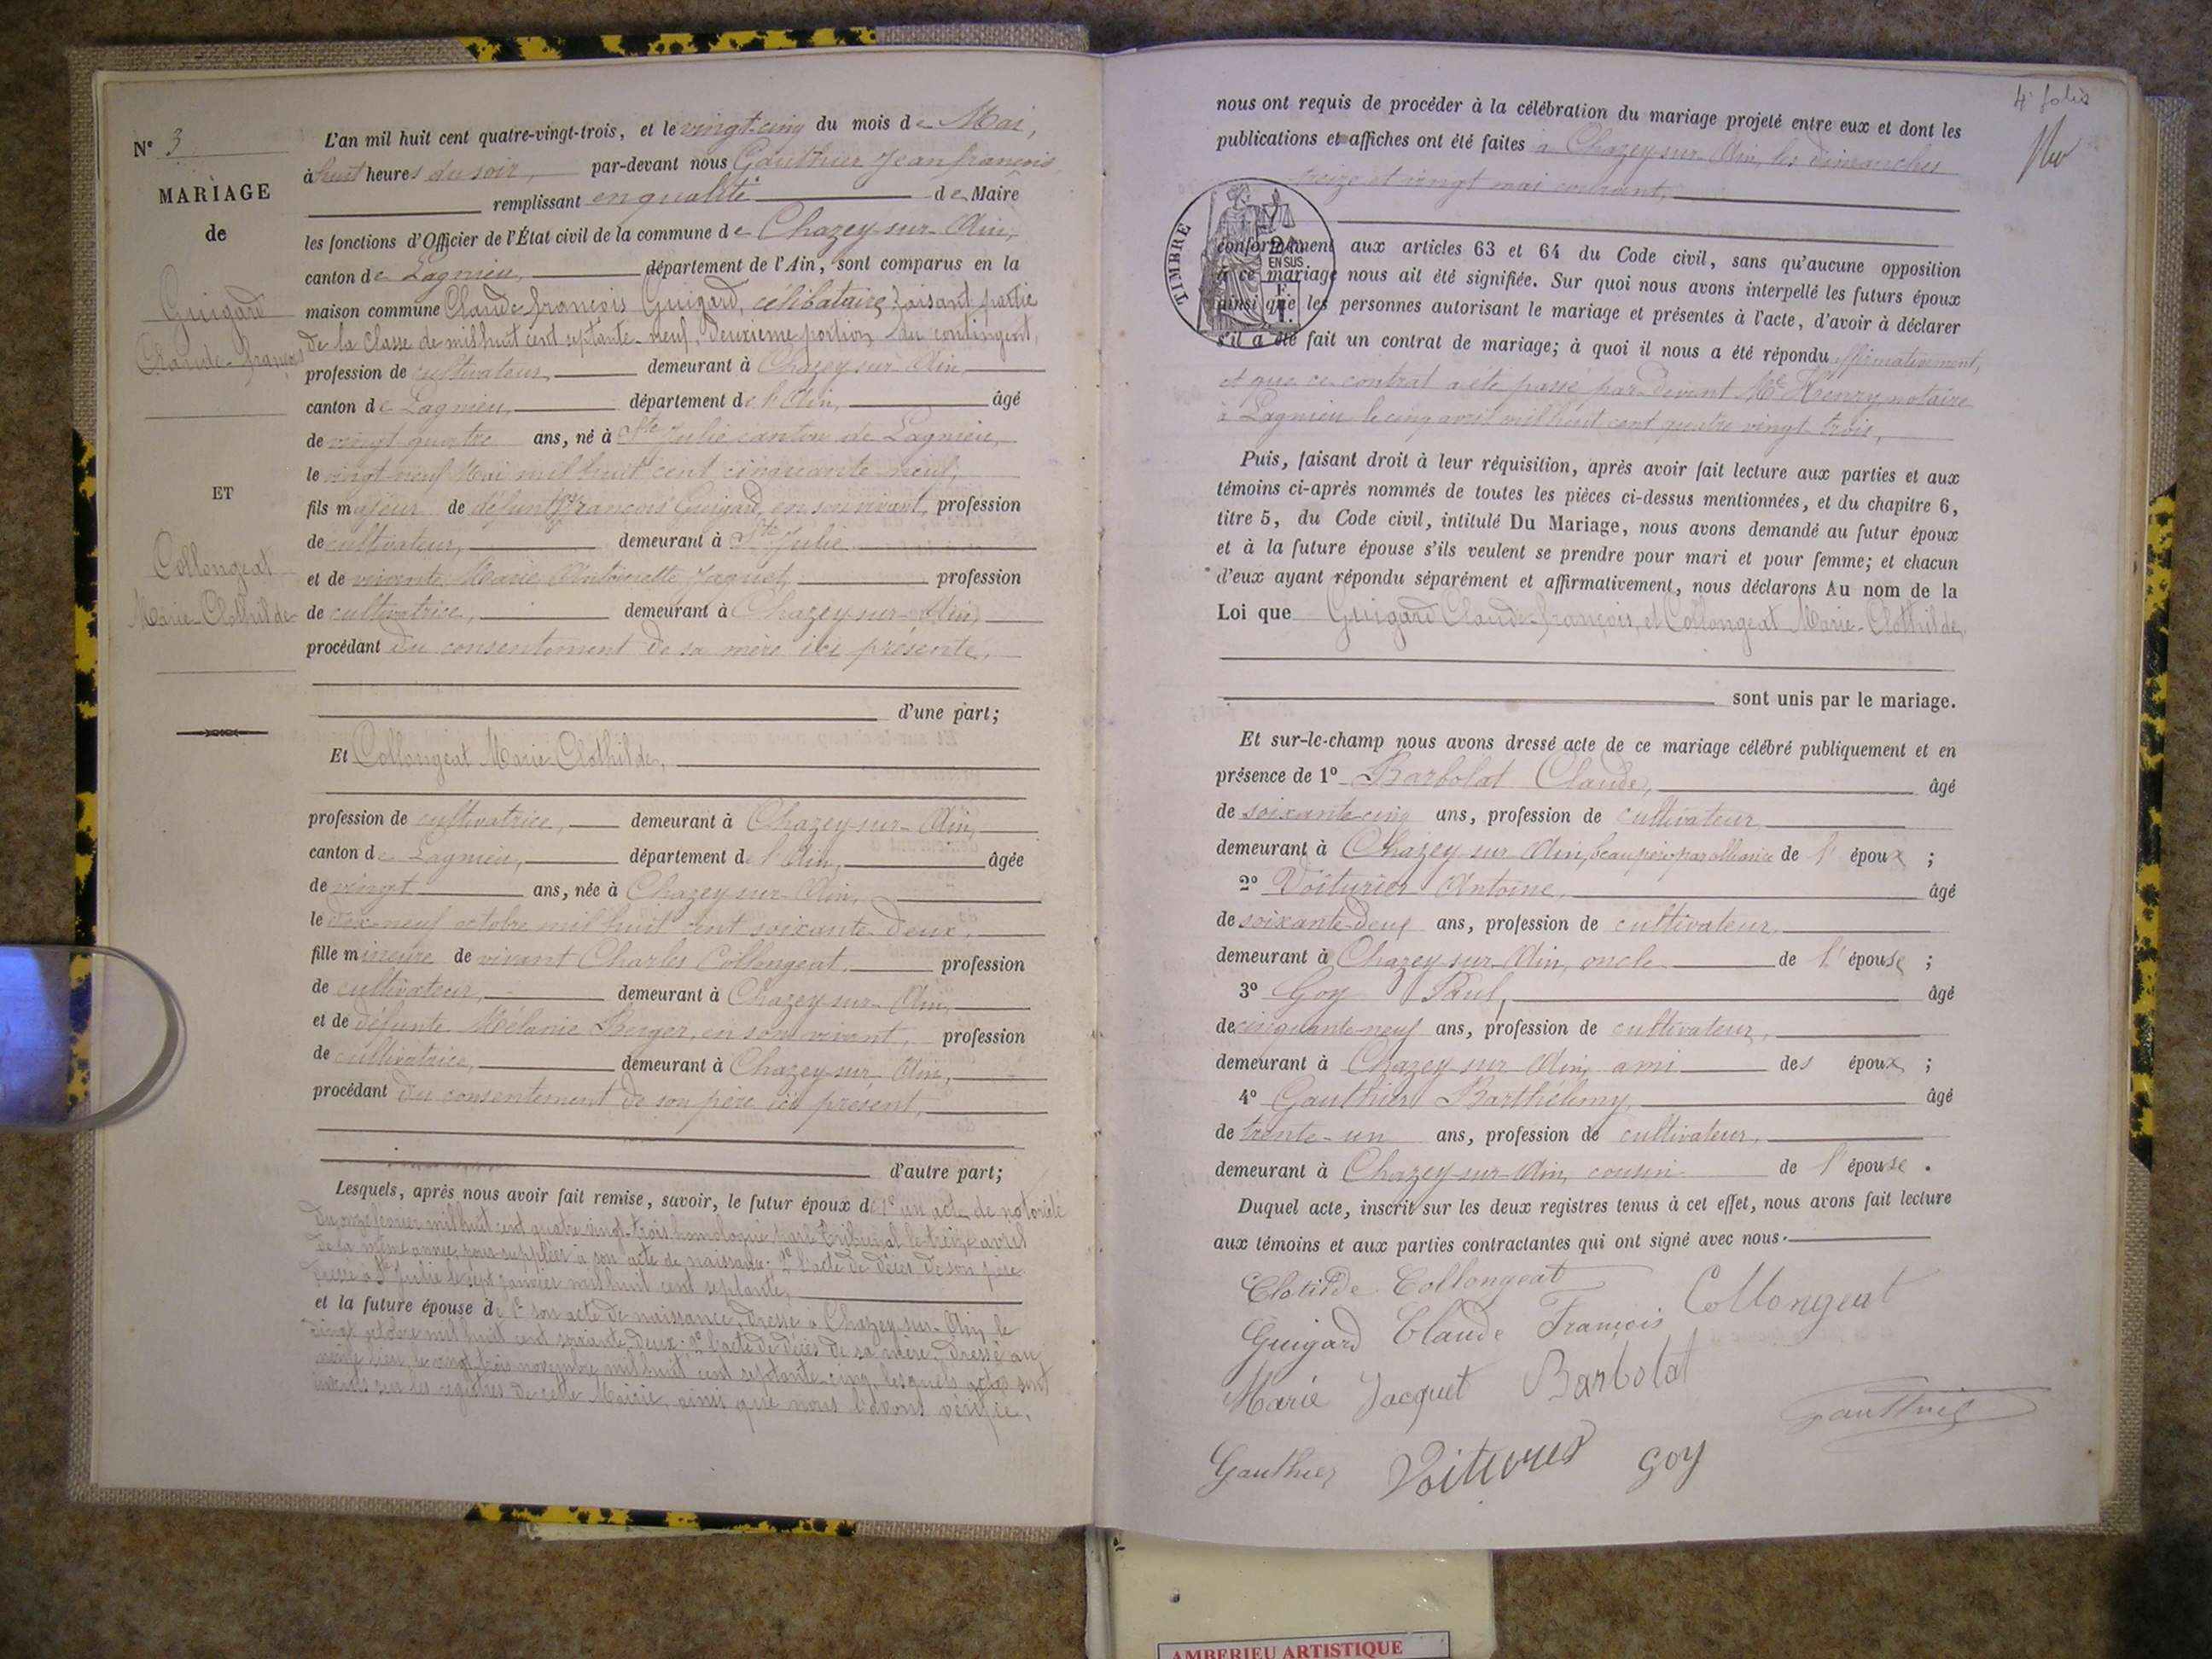 N° 3
MARIAGE
de
Guigard
Claude-françois
ET
Collongeat
Marie-Clothilde
L'an mil huit cent quatre-vingt-trois, et le vingt-cinq du mois de Mai,
à huit heures du soir, par-devant nous Gauthier Jean françois
remplissant en qualité de Maire
les fonctions d'Officier de l'État civil de la commune de Chazey-sur-Ain,
canton de Lagnieu, département de l'Ain, sont comparus en la
maison commune Claude françois Guigard, célibataire, faisant partie
de la classe de mil huit cent septante-neuf, deuxième portion du contingent,
profession de cultivateur, demeurant à Chazey sur Ain
canton de Lagnieu, département de l'Ain, âgé
de vingt quatre ans, né à Ste Julie canton de Lagnieu,
le vingt-neuf Mai mil huit cent cinquante-neuf,
fils majeur de défunt françois Guigard, en son vivant, profession
de cultivateur, demeurant à Ste Julie
et de vivante Marie Antoinette Jaquet, profession
de cultivatrice, demeurant à Chazey-sur-Ain,
procédant du consentement de sa mère ici présente,
d'une part;
Et Collongeat Marie-Clothilde,
profession de cultivatrice, demeurant à Chazey-sur-Ain,
canton de Lagnieu, département de l'Ain, âgée
de vingt ans, née à Chazey-sur-Ain,
le dix-neuf octobre mil huit cent soixante-deux,
fille mineure de vivant Charles Collongeat, profession
de cultivateur, demeurant à Chazey-sur-Ain,
et de défunte Mélanie Berger, en son vivant, profession
de cultivatrice, demeurant à Chazey-sur-Ain,
procédant du consentement de son père ici présent,
d'autre part;
Lesquels, après nous avoir fait remise, savoir, le futur époux de 1° un acte de notoriété
du onze février mil huit cent quatre-vingt-trois homologué par le tribunal le treize avril
de la même année, pour suppléer à son acte de naissance; 2° l'acte de décès de son père
dressé à Ste Julie le sept janvier mil huit cent septante,
et la future épouse de 1° son acte de naissance, dressé à Chazey-sur-Ain, le
vingt octobre mil huit cent soixante-deux; 2° l'acte de décès de sa mère, dressé au
même lieu, le vingt trois novembre mil huit cent septante-cinq, lesquels actes sont
inscrits sur les registres de cette Mairie, ainsi que nous l'avons vérifié.
4e folio
nous ont requis de procéder à la célébration du mariage projeté entre eux et dont les
publications et affiches ont été faites à Chazey-sur-Ain, les dimanches
treize et vingt mai courant,
TIMBRE
EN SUS
conformément aux articles 63 et 64 du Code civil, sans qu'aucune opposition
à ce mariage nous ait été signifiée. Sur quoi nous avons interpellé les futurs époux
ainsi que les personnes autorisant le mariage et présentes à l'acte, d'avoir à déclarer
s'il a été fait un contrat de mariage; à quoi il nous a été répondu affirmativement,
et que ce contrat a été passé par-devant Me Henry notaire
à Lagnieu le cinq avril mil huit cent quatre vingt-trois,
Puis, faisant droit à leur réquisition, après avoir fait lecture aux parties et aux
témoins ci-après nommés de toutes les pièces ci-dessus mentionnées, et du chapitre 6,
titre 5, du Code civil, intitulé Du Mariage, nous avons demandé au futur époux
et à la future épouse s'ils veulent se prendre pour mari et pour femme; et chacun
d'eux ayant répondu séparément et affirmativement, nous déclarons Au nom de la
Loi que Guigard Claude-françois, et Collongeat Marie-Clothilde,
sont unis par le mariage.
Et sur-le-champ nous avons dressé acte de ce mariage célébré publiquement et en
présence de 1° Barbolat Claude, âgé
de soixante-cinq ans, profession de cultivateur
demeurant à Chazey-sur-Ain, beau père par alliance de l'époux ;
2° Voiturier Antoine, âgé
de soixante-deux ans, profession de cultivateur
demeurant à Chazey-sur-Ain, oncle de l'épouse ;
3° Goy Paul, âgé
de cinquante-neuf ans, profession de cultivateur,
demeurant à Chazey-sur-Ain, ami des époux ;
4° Gauthier Barthélemy, âgé
de trente-un ans, profession de cultivateur,
demeurant à Chazey-sur-Ain, cousin de l'épouse.
Duquel acte, inscrit sur les deux registres tenus à cet effet, nous avons fait lecture
aux témoins et aux parties contractantes qui ont signé avec nous.
Clotilde Collongeat
Guigard Claude François Collongeat
Marie Jacquet Barbolat
Gauthier
Gauthier Voiturier Goy
AMBERIEU ARTISTIQUE